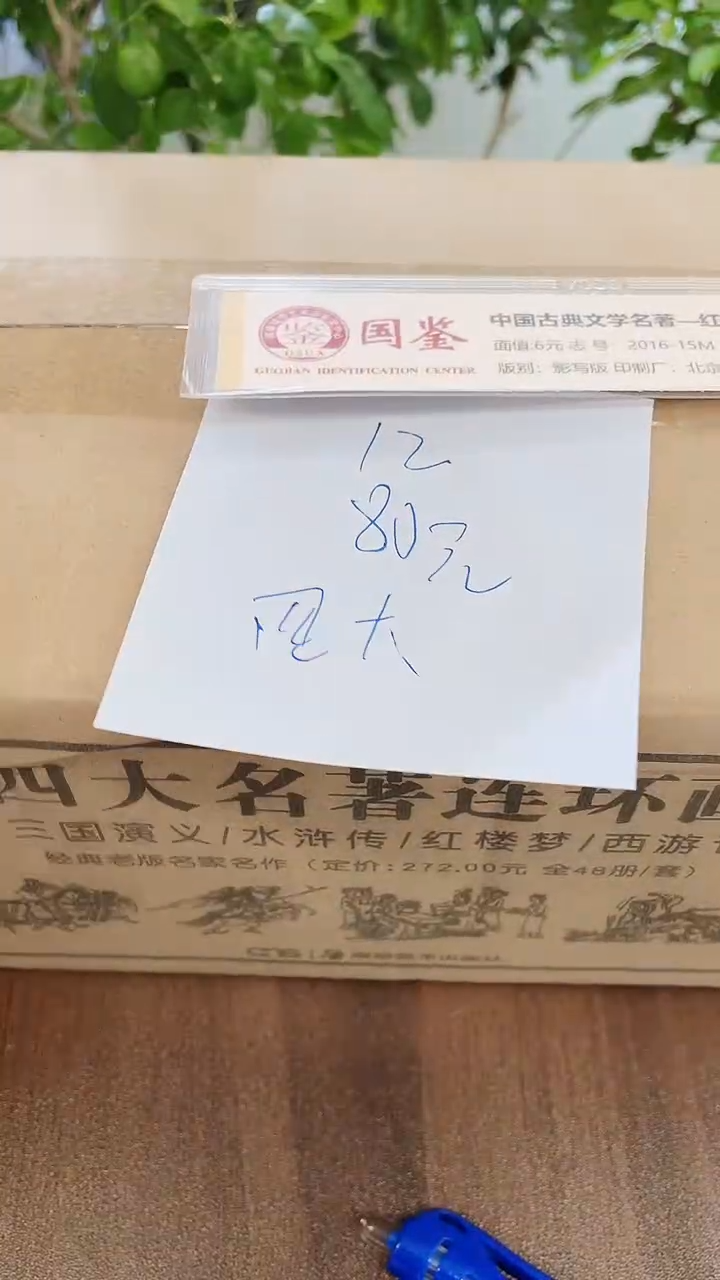 国鉴
GUOJIAN IDENTIFICATION CENTER
中国古典文学名著—红
面值:6元 志 号 2016-15M
版别：影写版 印制厂：北京
12
80元
四大
四大名著连环画
三国演义/水浒传/红楼梦/西游
经典老版名家名作（定价:272.00元 全48册/套）